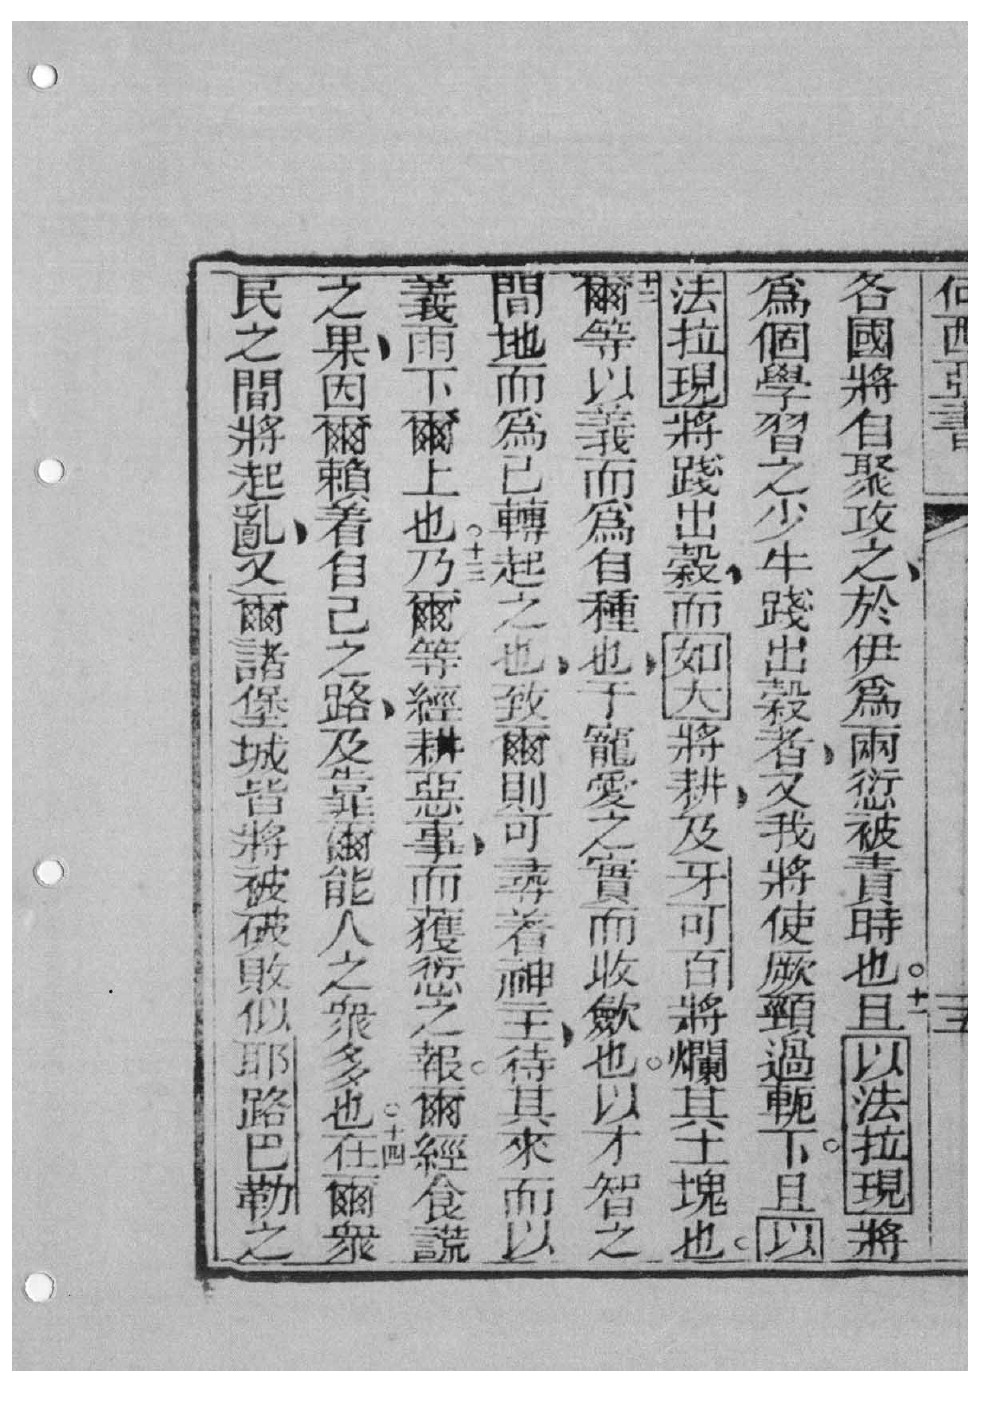 何西亞書 三
各國將自聚攻之於伊爲兩愆被責時也。十一且以法拉現將
爲個學習之少牛踐出穀者又我將使厥頸過軛下。且以
法拉現將踐出穀而如大將耕及牙可百將爛其土塊也。
十二爾等以義而爲自種也于寵愛之實而收歛也。以才智之
間地而爲己轉起之也致爾則可尋着神主待其來而以
義雨下爾上也。十三乃爾等經耕惡事而獲愆之報。爾經食謊
之果因爾賴着自己之路及靠爾能人之衆多也。十四在爾衆
民之間將起亂又爾諸堡城皆將被破敗似耶路巴勒之